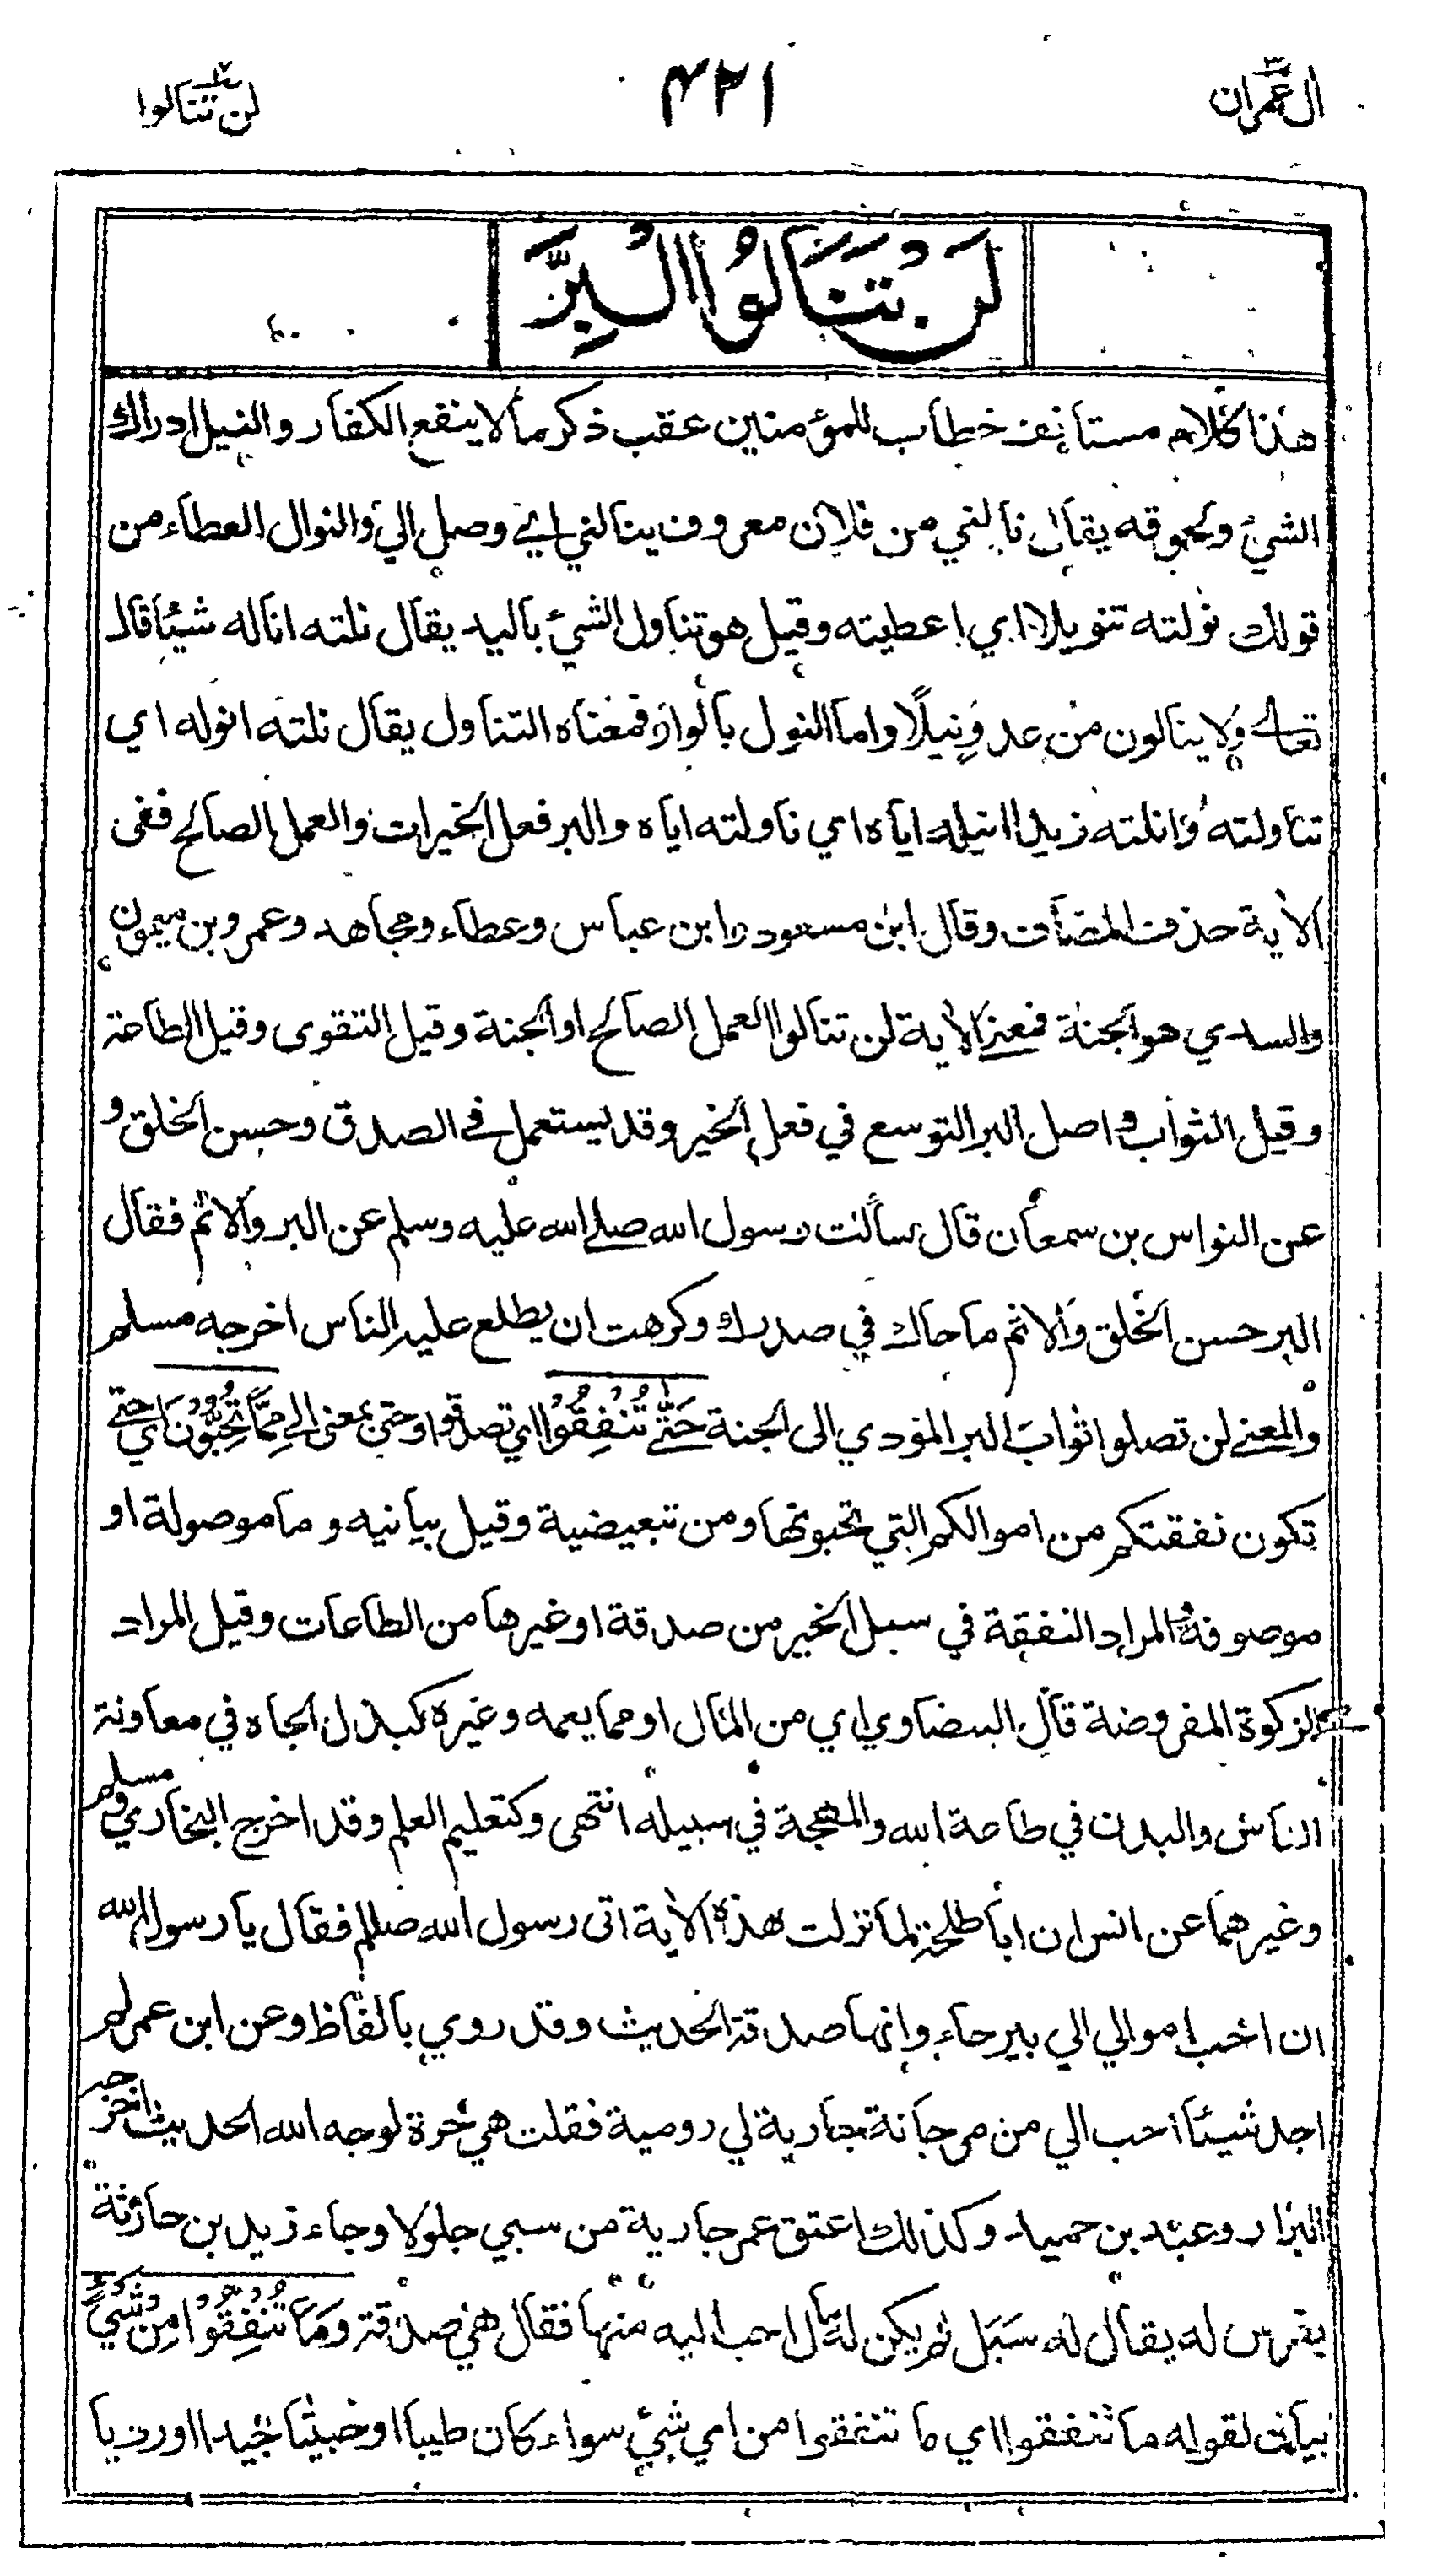 اٰل عمران ٣
٤٢١
لن تنالوا ٤
لَنْ تَنَالُوا الْبِرَّ
هذا كلام مستأنف خطاب للمؤمنين عقب ذكر ما لا ينفع الكفار والنيل ادراك
الشيء ولحوقه يقال نالني من فلان معروف ينالني اي وصل الي والنوال العطاء من
قولك نولته تنويلا اي اعطيته وقيل هو تناول الشيء باليد يقال نلته اناله شيئا قال
تعالى ولا ينالون من عدو نيلًا واما النول بالواو فمعناه التناول يقال نلته انوله اي
تناولته وانلته زيدا انيله اياه اي ناولته اياه والبر فعل الخيرات والعمل الصالح ففى
الاية حذف المضاف وقال ابن مسعود وابن عباس وعطاء ومجاهد وعمرو بن ميمون
والسدي هو الجنة فمعنى الاية لن تنالوا العمل الصالح او الجنة وقيل التقوى وقيل الطاعة
وقيل الثواب واصل البر التوسع في فعل الخير وقد يستعمل في الصدق وحسن الخلق و
عن النواس بن سمعان قال سألت رسول الله صلى الله عليه وسلم عن البر والاثم فقال
البر حسن الخلق والاثم ما حاك في صدرك وكرهت ان يطلع عليه الناس اخرجه مسلم
والمعنى لن تصلوا ثواب البر المؤدي الى الجنة حَتّٰى تُنْفِقُوْا اي تصدقوا وحتى بمعنى الى مِمَّا تُحِبُّوْنَ اي حتى
تكون نفقتكم من اموالكم التي تحبونها ومن تبعيضية وقيل بيانيه وما موصولة او
موصوفة والمراد النفقة في سبل الخير من صدقة او غيرها من الطاعات وقيل المراد
الزكوة المفروضة قال البيضاوي اي من المال او مما يعمه وغيره كبذل الجاه في معاونة
الناس والبدن في طاعة الله والمهجة في سبيله انتهى وكتعليم العلم وقد اخرج البخاري ومسلم
وغيرهما عن انس ان ابا طلحة لما نزلت هذه الاية اتى رسول الله صللم فقال يا رسول الله
ان احب اموالي الي بيرحاء وانها صدقة الحديث وقد روي بالفاظ وعن ابن عمر لم
اجد شيئا احب الي من مرجانة جارية لي رومية فقلت هي حرة لوجه الله الحديث اخرجه
البزار وعبد بن حميد وكذلك اعتق عمر جارية من سبي جلولا وجاء زيد بن حارثة
بفرس له يقال له سَبَل لم يكن له مال احب اليه منها فقال هي صدقة وَمَا تُنْفِقُوْا مِنْ شَيْءٍ
بيان لقوله ما تنفقوا اي ما تنفقوا من اي شيء سواء كان طيبا او خبيثا جيدا او رديا